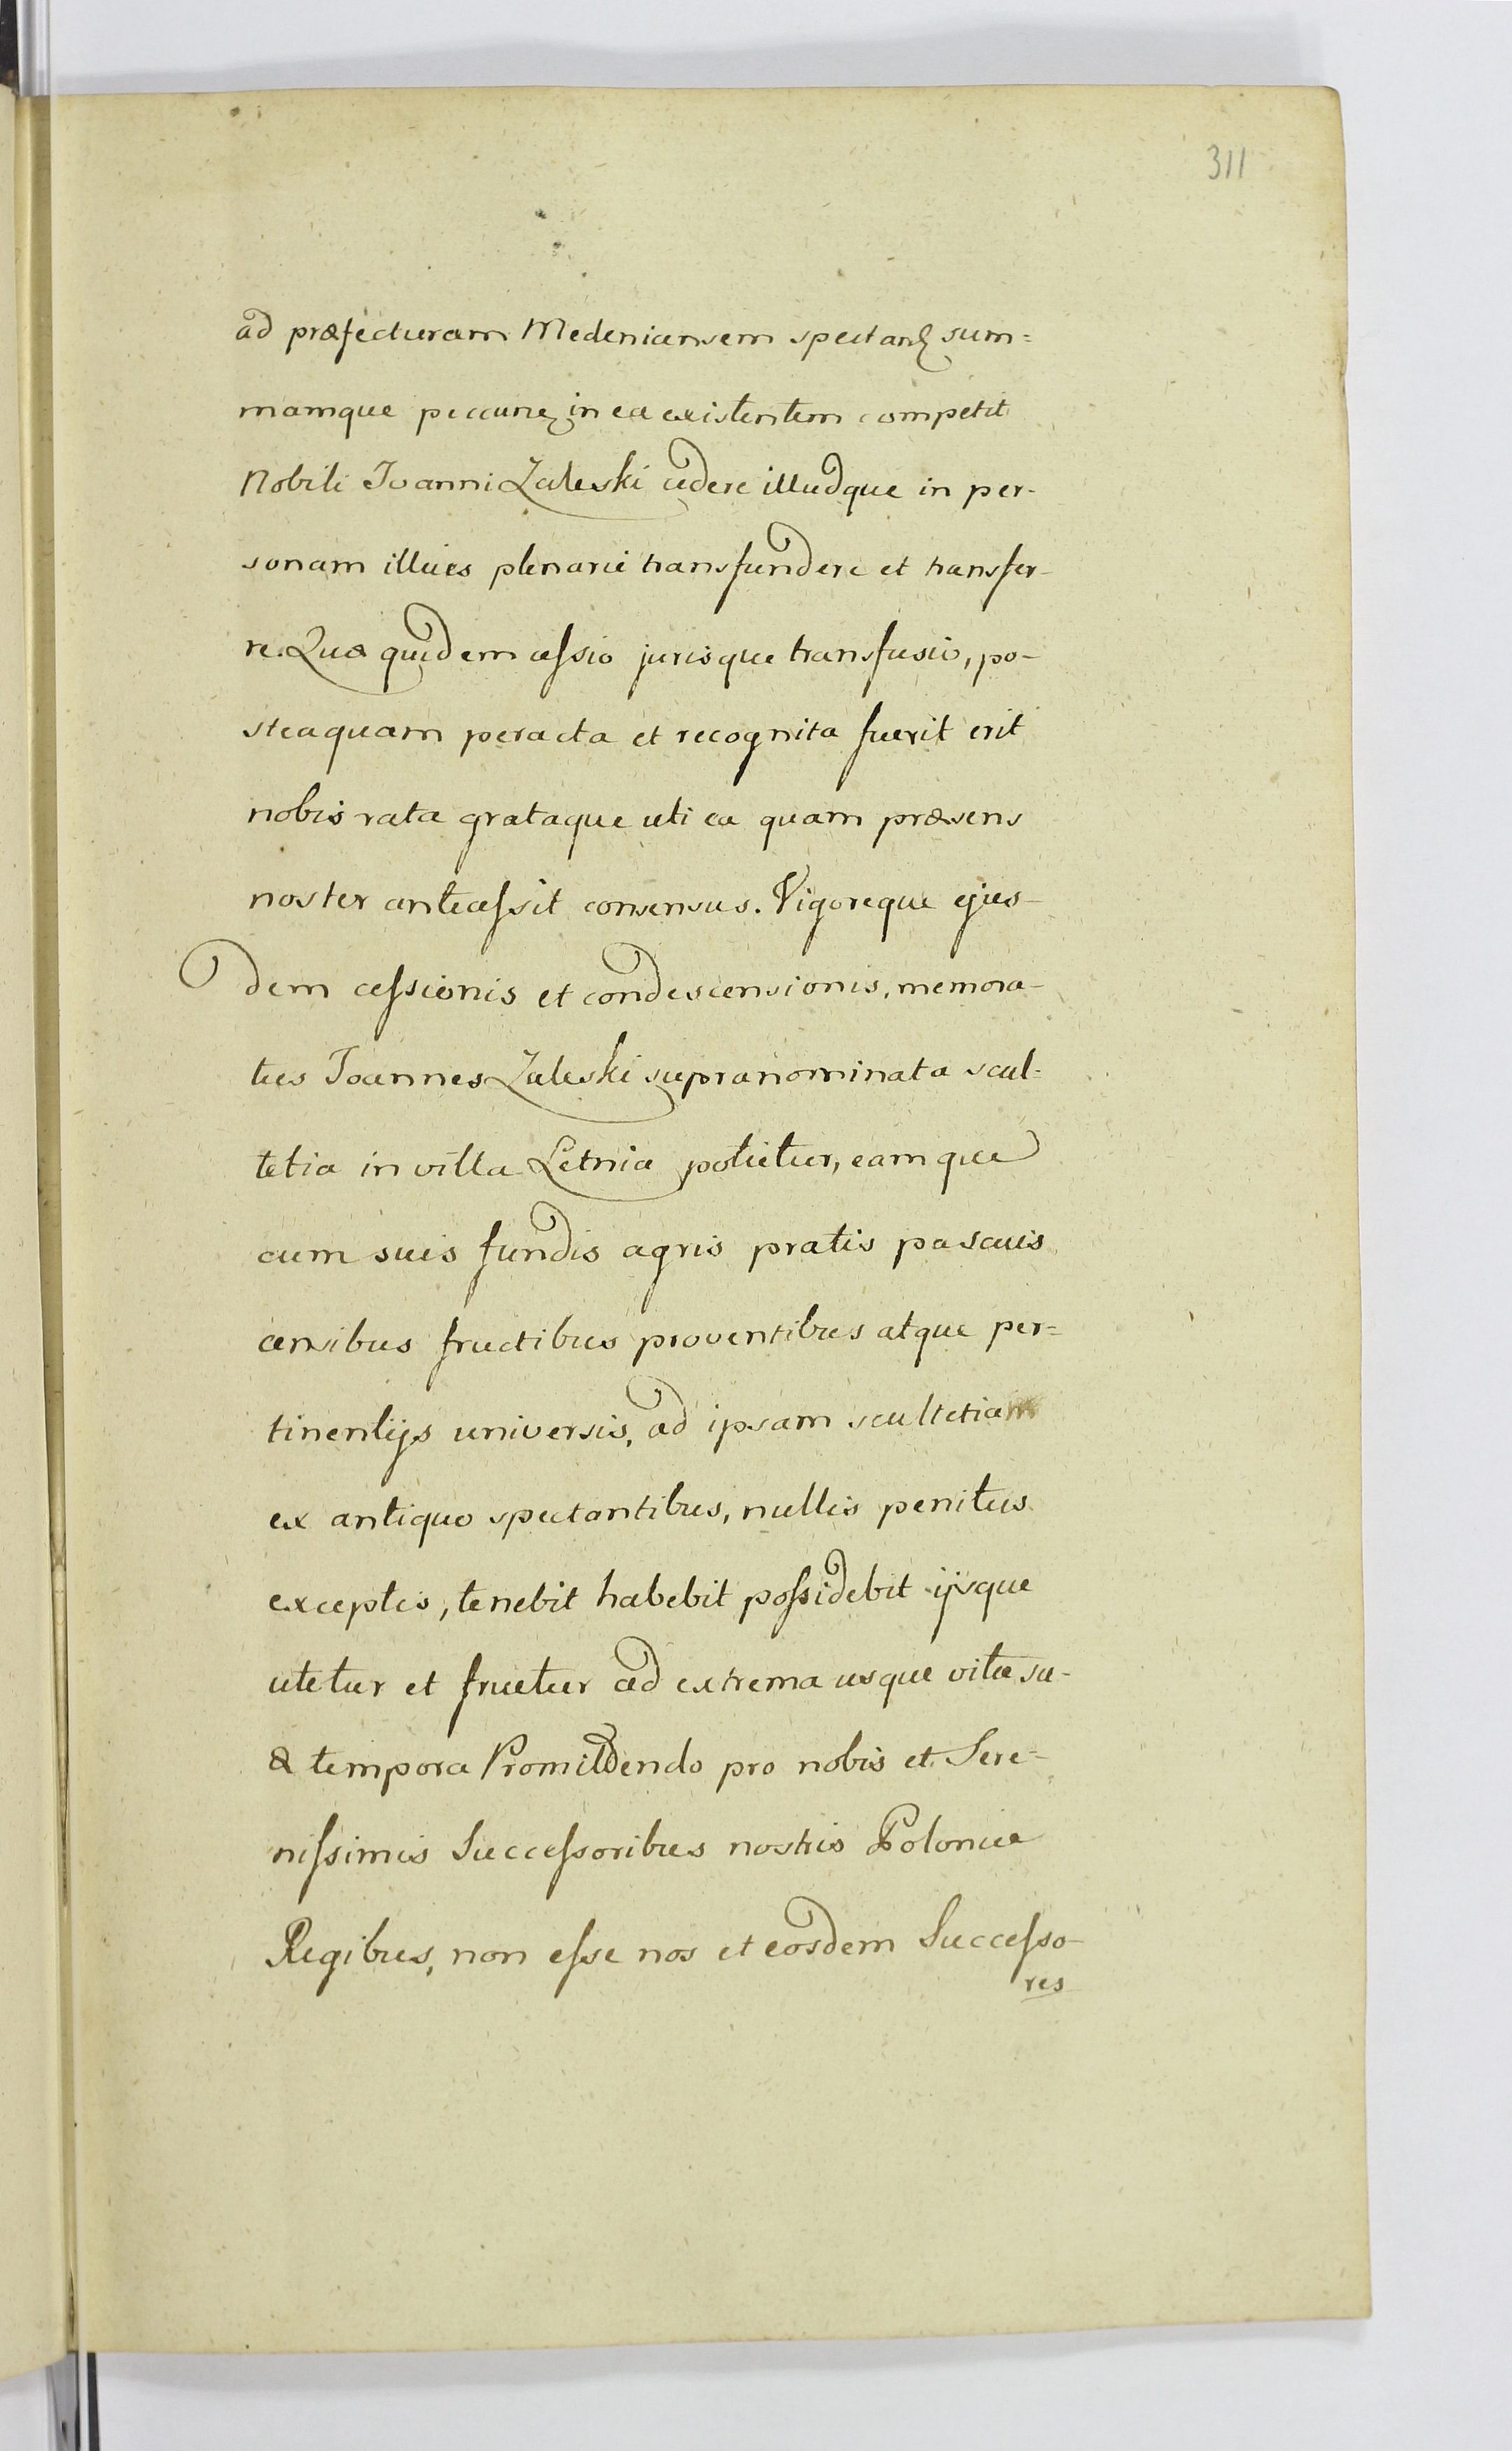 311
ad præfecturam Medenicensem spectanꝭ sum=
mamque pecuniꝭ in ea existentem competit
Nobili Joanni Zaleski cedere illudque in per-
sonam illius plenarie transfundere et transfer-
re. Quæ quidem cessio jurisque transfusio, po-
steaquam peracta et recognita fuerit erit
nobis rata grataque uti ea quam præsens
noster antecessit consensus. Vigoreque ejus-
dem cessionis et condescensionis, memora-
tus Joannes Zaleski supranominata scul-
tetia in villa Letnia potietur, eamque
cum suis fundis agris pratis pascuis
censibus fructibus proventibus atque per=
tinentijs universis, ad ipsam scultetiam
ex antiquo spectantibus, nullis penitus
exceptis, tenebit habebit possidebit ijsque
utetur et fruetur ad extrema usque vitæ su-
æ tempora Promittendo pro nobis et Sere=
nissimis Successoribus nostris Poloniæ
Regibus, non esse nos et eosdem Successo-
res